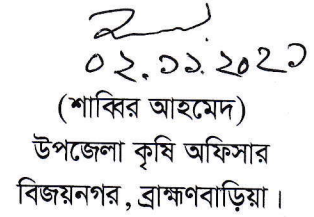 ০২.১১.২০২১
(শাব্বির আহমেদ)
উপজেলা কৃষি অফিসার
বিজয়নগর, ব্রাহ্মণবাড়িয়া।